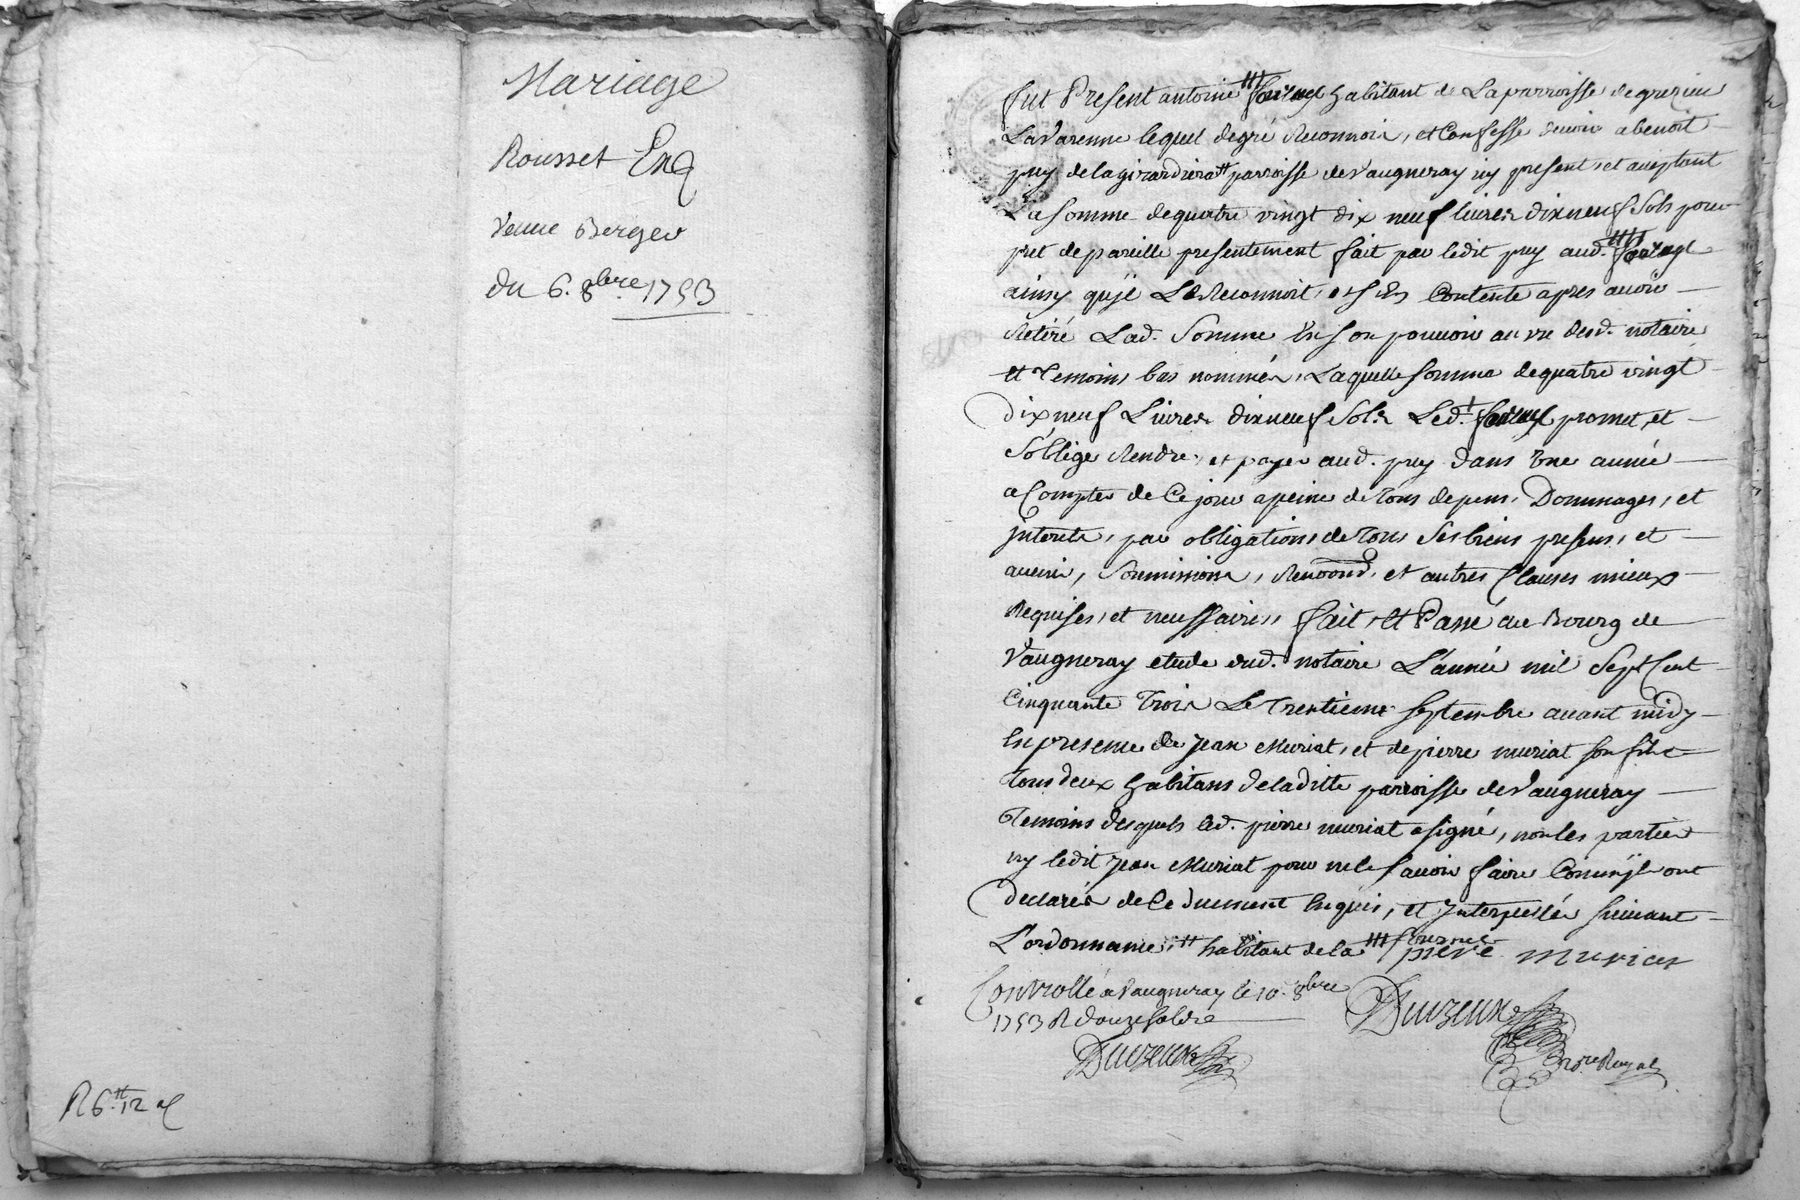 Mariage
Rousset Enq
Veuve Berger
du 6. 8bre 1753
R 6tt 12 s
fut Present antoine ttt habitant de La parroisse de grezieu
La Varenne lequel de gré Reconnoit, et Confesse devoir a benoit
puy de la girardiere tt parroisse de Vaugneray icy present, et acceptant
La somme de quatre vingt dix neuf livres dixneuf Sols pour
pret de pareille presentement fait par ledit puy aud. tttt
ainsy qu'jl Le Reconnoit, et s'En Contente apres avoir
Retiré Lad. Somme En son pouvoir au vu dud. notaire
et Temoins bas nommés, Laquelle somme de quatre vingt
dix neuf Livres dixneuf Sols Led. t promet, et
s'oblige Rendre, et payer aud. puy dans Une année
a Compter de Ce jour a peine de Tous depens, Dommages, et
jnterets, par obligations de Tous Ses biens presens, et
avenir, Soumissions, Renonc~, et autres Clauses mieux
Requises, et necessaires, fait, et Passé au Bourg de
Vaugneray etude dud. notaire L'année mil Sept Cent
Cinquante Trois Le Trentieme Septembre avant midy
En presence de Jean Muriat, et de pierre muriat son fils
tous deux habitans de laditte parroisse de Vaugneray
Temoins desquels led. pierre muriat a signé, non les parties
ny ledit Jean Muriat pour ne le savoir faire Comm'jls ont
declarés de Ce duement Enquis, et Jnterpellés suivant
L'ordonnance. tt habitant de la ttt
pierre muriat
Controllé a Vaugneray le 10. 8bre
1753 R douze sols
Duvzeux
Duvzeux
nore Royal